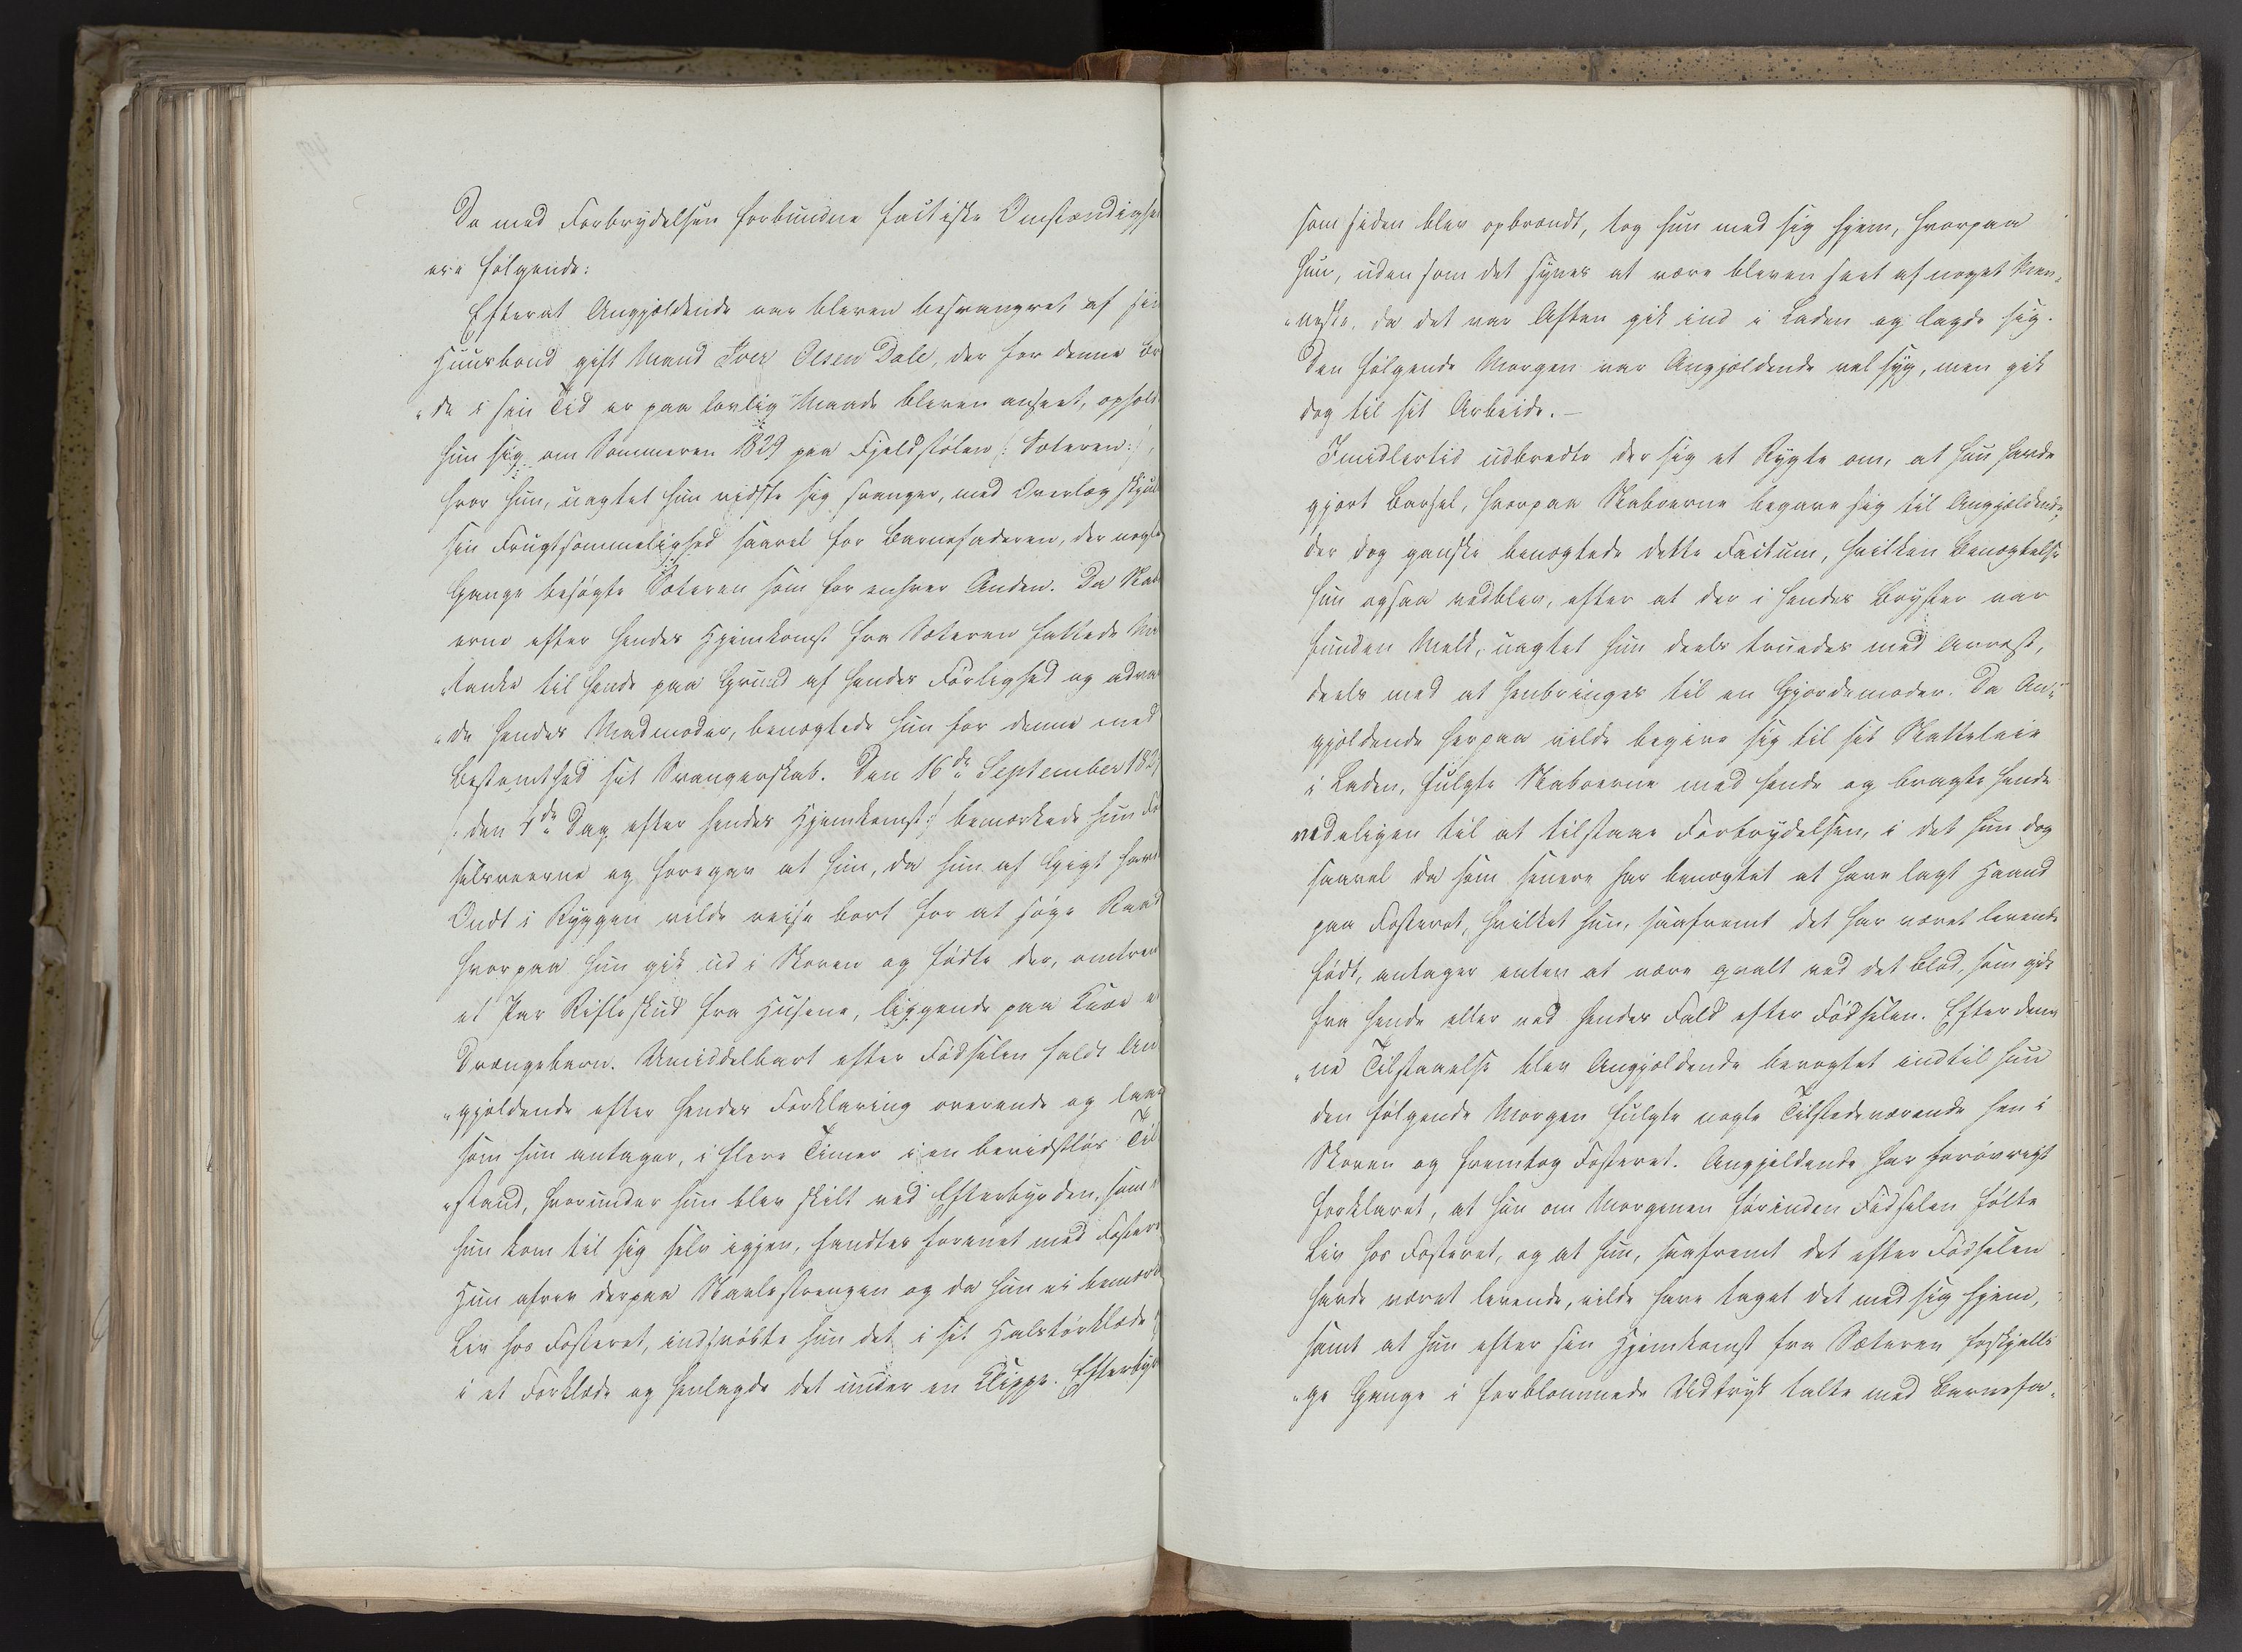 De med Forbrydelsen forbundne factiske Omstændighe
ere følgende:
Efterat Angjældende var bleven besvangret af sin
Huusbond gift Mand Iver Olsen Dale, der for denne Br
"de i sin Tid er paa lovlig Maade bleven anseet, opholdt
hun sig om Sommeren 1829 paa Fjeldstølen (: Sæteren:),
hvor hun, uagtet hun vidste sig svanger, med Overlæg skjul
sin Frugtsommelighed saavel for Barnefaderen, der nogle
Gange besøgte Sæteren som for enhver Anden. Da Nabo
erne efter hendes Hjemkomst fra Sæteren fattede Mis
"tanke til hende paa Grund af hendes Førlighed og advar
"de hendes Madmoder, benægtede hun for denne med
Bestemthed sit Svangerskab. Den 16de September 182
/: den 4de Dag efter hendes Hjemkomst:/ bemærkede hun Fø
selsveerne og foregav at hun, da hun af Gigt havde
Ondt i Ryggen vilde reise bort for at søge Raad
hvorpaa hun gik ud i Skoven og fødte der, omtrent
et Par Rifleskud fra Husene, liggende paa Knæ et
Drængebarn. Umiddelbart efter Fødselen faldt An
"gjældende efter hendes Forklaring overende og laae
som hun antager, i flere Timer i en bevidstløs Til
"stand, hvorunder hun blev skilt ved Efterbyrden, som
hun kom til sig selv igjen, fandtes forenet med Foster
Hun afrev derpaa Navlestrengen og da hun ei bemærk
Liv hos Fosteret, indsvøbte hun det i sit Halstørklæde
i et Forklæde og henlagde det under en Klippe. Efterbyr
som siden blev opbrændt, tog hun med sig hjem, hvorpaa
hun, uden som det synes at være bleven seet af noget Men,
"neske, da det var Aften gik ind i Laden og lagde sig.
Den følgende Morgen var Angjældende vel syg, men gik
dog til sit Arbeide.—
Imidlertid udbredte der sig et Rygte om, at hun havde
gjort Barsel, hvorpaa Naboerne begave sig til Angjældende,
der dog ganske benægtede dette Factum, hvilken Benægtelse
hun ogsaa vedblev, efter at der i hendes Bryster var
funden Melk, uagtet hun deels truedes med Arrest,
deels med at henbringes til en Gjordemoder. Da An"
gjældende herpaa vilde begive sig til sit Natteleie
i Laden, fulgte Naboerne med hende og bragte hende
endeligen til at tilstaae Forbrydelsen, i det hun dog
saavel da som senere har benægtet at have lagt Haand
paa Fosteret, hvilket hun, saafremt det har været levende
født, antager enten at være qvalt ved det Blod, som gik
fra hende eller ved hendes Fald efter Fødselen. Efter den"
"ne Tilstaaelse blev Angjældende bevogtet indtil hun
den følgende Morgen fulgte nogle Tilstedeværende hen i
Skoven og fremtog Fosteret. Angjældende har forøvrigt
forklaret, at hun om Morgenen førinden Fødselen følte
Liv hos Fosteret, og at hun, saafremt det efter Fødselen
havde været levende, vilde have taget det med sig hjem,
samt at hun efter sin Hjemkomst fra Sæteren forskjelli
"ge Gange i forblommede Udtryk talte med Barnefa"